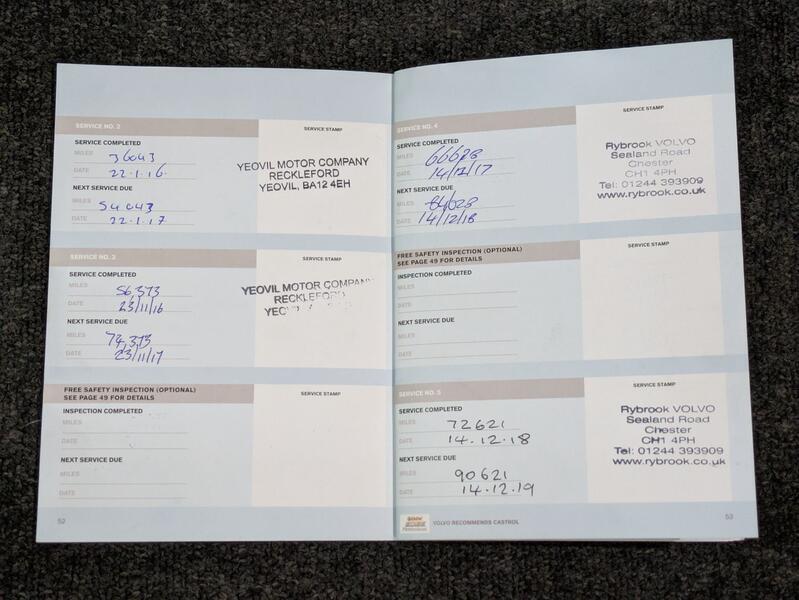 SERVICE NO. 2
SERVICE STAMP
SERVICE COMPLETED
MILES 36043
DATE 22.1.16.
NEXT SERVICE DUE
MILES 54043
DATE 22.1.17
YEOVIL MOTOR COMPANY
RECKLEFORD
YEOVIL, BA12 4EH
SERVICE NO. 3
SERVICE STAMP
SERVICE COMPLETED
MILES 56,373
DATE 23/11/16
NEXT SERVICE DUE
MILES 74,373
DATE 23/11/17
YEOVIL MOTOR COMPANY
RECKLEFORD
FREE SAFETY INSPECTION (OPTIONAL)
SEE PAGE 49 FOR DETAILS
SERVICE STAMP
INSPECTION COMPLETED
MILES
DATE
NEXT SERVICE DUE
MILES
DATE
52
SERVICE NO. 4
SERVICE STAMP
SERVICE COMPLETED
MILES 66628
DATE 14/12/17
NEXT SERVICE DUE
MILES 84628
DATE 14/12/18
Rybrook VOLVO
Sealand Road
Chester
CH1 4PH
Tel: 01244 393909
www.rybrook.co.uk
FREE SAFETY INSPECTION (OPTIONAL)
SEE PAGE 49 FOR DETAILS
SERVICE STAMP
INSPECTION COMPLETED
MILES
DATE
NEXT SERVICE DUE
MILES
DATE
SERVICE NO. 5
SERVICE STAMP
SERVICE COMPLETED
MILES 72621
DATE 14.12.18
NEXT SERVICE DUE
MILES 90621
DATE 14.12.19
Rybrook VOLVO
Sealand Road
Chester
CH1 4PH
Tel: 01244 393909
www.rybrook.co.uk
VOLVO RECOMMENDS CASTROL
53